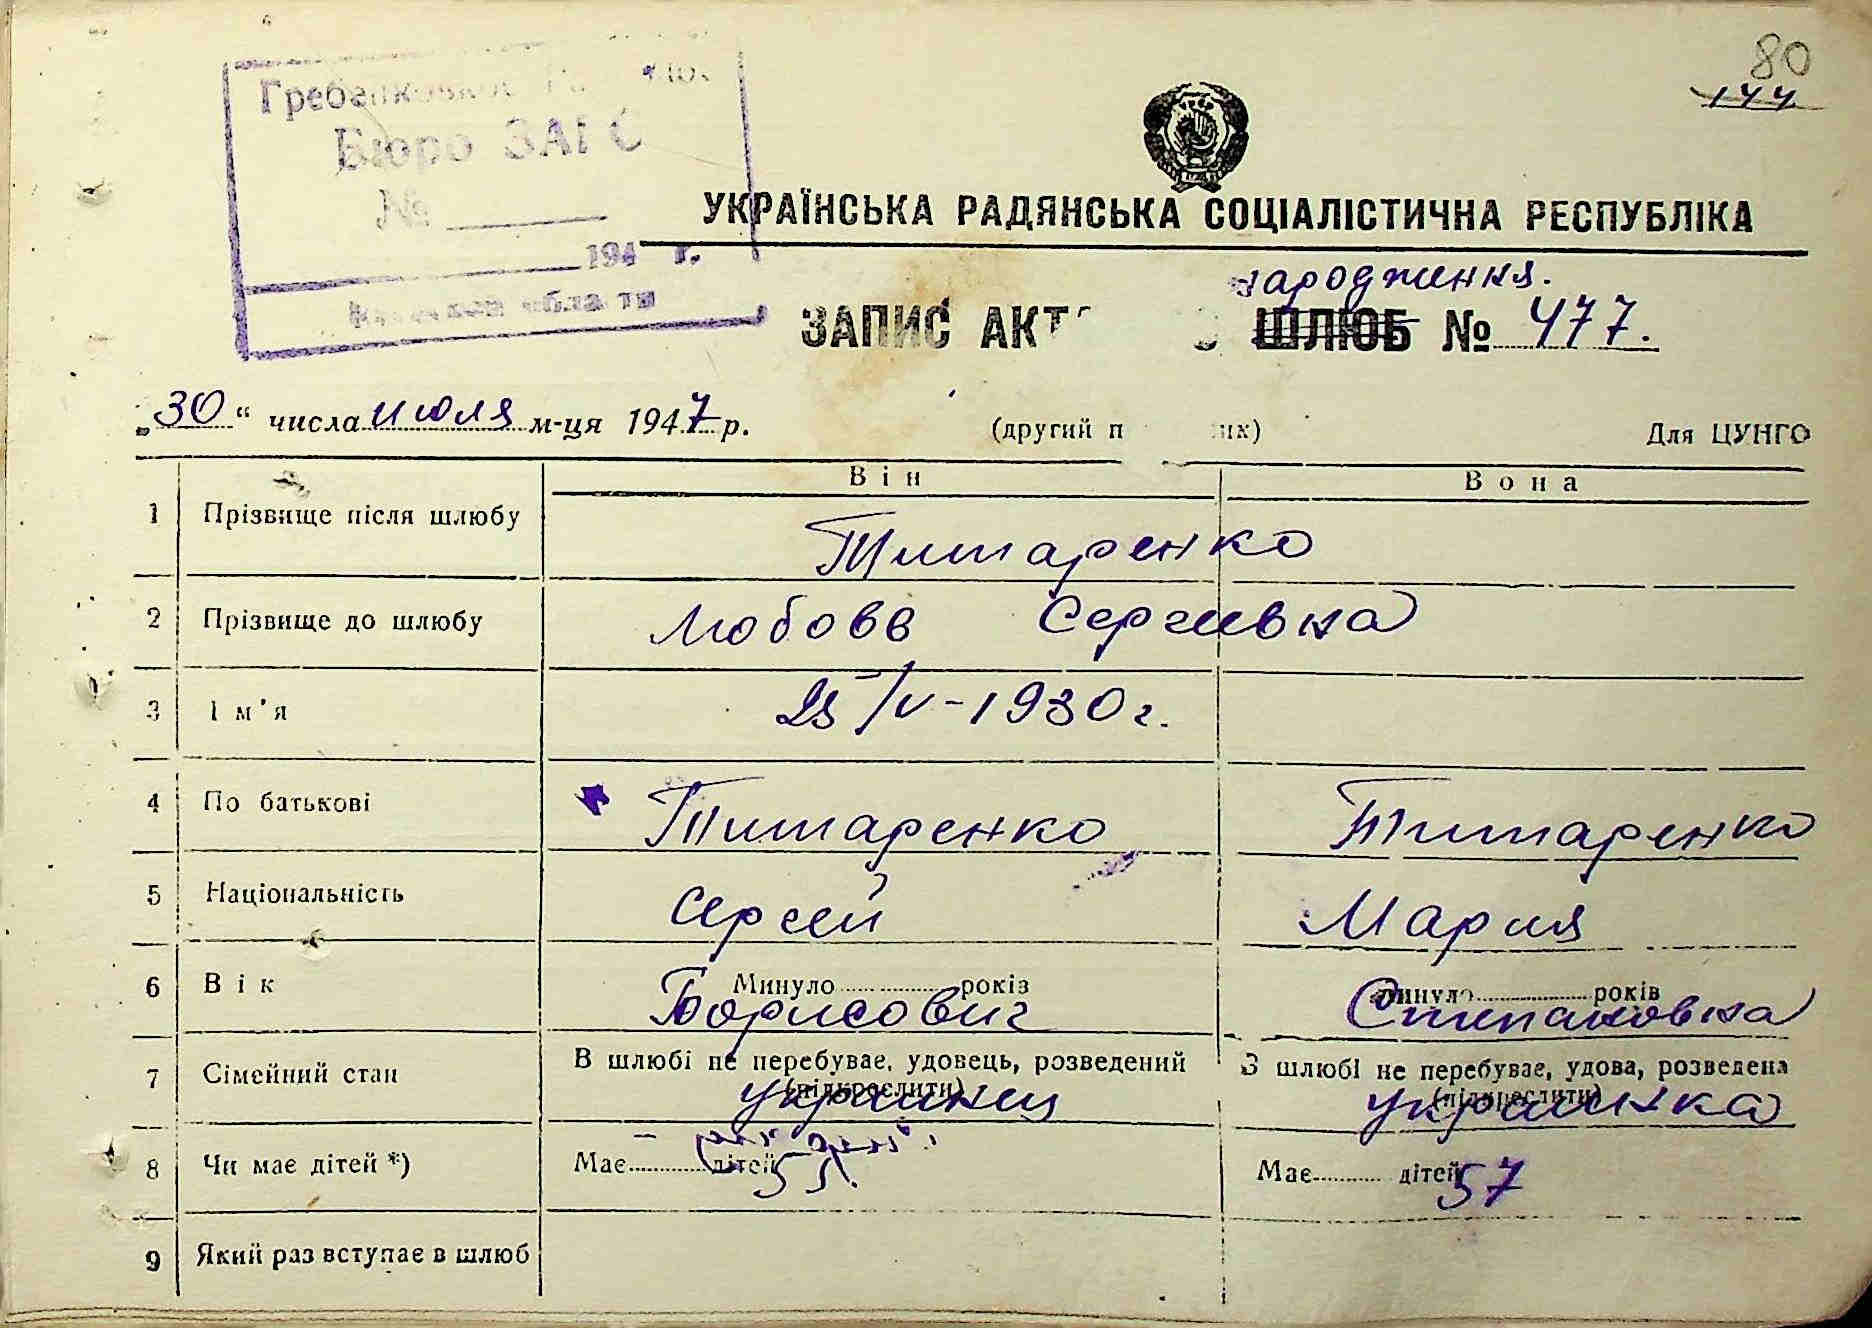 80
144
Бюро ЗАГС
№
194 г.
УКРАЇНСЬКА РАДЯНСЬКА СОЦІАЛІСТИЧНА РЕСПУБЛІКА
народження.
ЗАПИС АКТ ШЛЮБ № 477.
„30“ числа июля м-ця 1947 р. (другий п ик) Для ЦУНГО
Він Вона
1 Прізвище після шлюбу Титаренко
2 Прізвище до шлюбу Любовь Сергеевна
3 Ім'я 25/V-1930 г.
4 По батькові Титаренко Титаренко
5 Національність Сергей Мария
6 Вік Минуло років Минуло років
Борисович Степановна
7 Сімейний стан В шлюбі не перебуває, удовець, розведений В шлюбі не перебуває, удова, розведена
(підкреслити) (підкреслити)
украинец украинка
8 Чи має дітей *) Має дітей Має дітей
55 57
9 Який раз вступає в шлюб